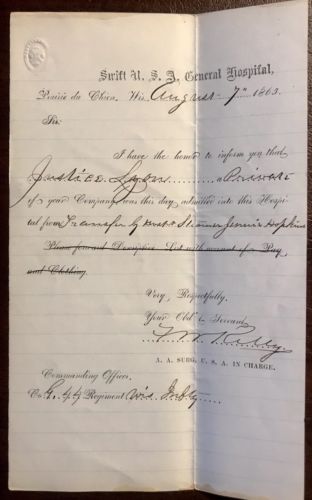 Swift U. S. A. General Hospital,
Prairie du Chien, Wis. August 7th 1863.
Sir:
I have the honor to inform you that
Justice Lyon a Private
of your Company, was this day admitted into this Hospi-
tal from Transfer by Steamer Jennie Hopkins
Please forward Descriptive List with account of Pay
and Clothing.
Very Respectfully,
Your Obd't Servant,
A. A. SURG. U. S. A. IN CHARGE.
Commanding Officer,
Co. G. 44 Regiment Wis. Infty